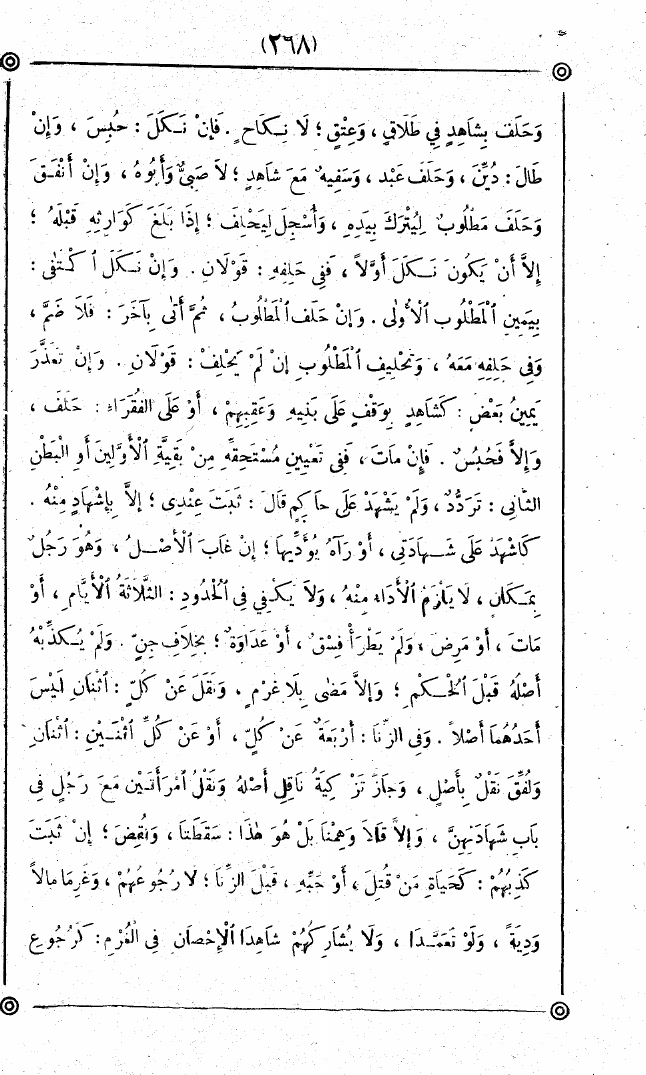 (٢٦٨)
وَحَلَفَ بِشَاهِدٍ فِي طَلَاقٍ ، وَعِتْقٍ ؛ لَا نِكَاحٍ . فَإِنْ نَكَلَ : حُبِسَ ، وَإِنْ
طَالَ : دُيِّنَ ، وَحَلَفَ عَبْد ، وَسَفِيهٌ مَعَ شاهِدٍ ؛ لاَ صَبِيٌّ وَأَبُوهُ ، وَإِنْ أَنْفَقَ
وَحَلَفَ مَطْلُوبٌ لِيُتْرَكَ بِيَدِهِ ، وَأُسْجِلَ لِيَحْلِفَ ؛ إِذَا بَلَغَ كَوَارِثِهِ قَبْلَهُ ؛
إِلاَّ أَنْ يَكُونَ نَكَلَ أَوَّلاً ، فَفِي حَلِفِهِ : قَوْلَانِ . وَإِنْ نَكَلَ ٱكْتَفَى :
بِيَمِينِ ٱلْمَطْلُوبِ ٱلْأُولَى . وَإِنْ حَلَفَ ٱلْمَطْلُوبُ ، ثُمَّ أَتَى بِآخَرَ : فَلَا ضَمَّ ،
وَفِي حَلِفِهِ مَعَهُ ، وَتَحْلِيفِ ٱلْمَطْلُوبِ إِنْ لَمْ يَحْلِفْ : قَوْلَانِ . وَإِنْ تَعَذَّرَ
يَمِينُ بَعْضٍ : كَشَاهِدٍ بِوَقْفٍ عَلَى بَنِيهِ وَعَقِبِهِمْ ، أَوْ عَلَى الفُقَرَاءِ : حَلَفَ ،
وَإِلاَّ فَحُبُسٌ . فَإِنْ مَاتَ ، فَفِي تَعْيِينِ مُسْتَحِقِّهِ مِنْ بَقِيَّةِ ٱلْأَوَّلِينَ أَوِ الْبَطْنِ
الثَّانِي : تَرَدُّدٌ ، وَلَمْ يَشْهَدْ عَلَى حَاكِمٍ قَالَ : ثَبَتَ عِنْدِي ؛ إِلاَّ بِإِشْهَادٍ مِنْهُ .
كَاشْهَدْ عَلَى شَهَادَتِي ، أَوْ رَآهُ يُؤَدِّيهَا ؛ إِنْ غَابَ ٱلْأَصْلُ ، وَهُوَ رَجُلٌ
بِمَكَانٍ ، لَا يَلْزَمُ ٱلْأَدَاءُ مِنْهُ ، وَلَا يَكْفِي فِي ٱلْحُدُودِ : الثَّلَاثَةُ ٱلْأَيَّامِ ، أَوْ
مَاتَ ، أَوْ مَرِضَ ، وَلَمْ يَطْرَأْ فِسْقٌ ، أَوْ عَدَاوَةٌ ؛ بِخِلَافِ جِنٍّ . وَلَمْ يُكَذِّبْهُ
أَصْلُهُ قَبْلَ ٱلْحُكْمِ ؛ وَإِلاَّ مَضَى بِلَا غُرْمٍ ، وَنَقَلَ عَنْ كُلٍّ : ٱثْنَانِ لَيْسَ
أَحَدُهُمَا أَصْلاً . وَفِي الزِّنَا : أَرْبَعَةٌ عَنْ كُلٍّ ، أَوْ عَنْ كُلِّ ٱثْنَيْنِ : ٱثْنَانِ
وَلُفِّقَ نَقْلٌ بِأَصْلٍ ، وَجَازَ تَزْكِيَةُ نَاقِلٍ أَصْلَهُ وَنَقْلُ ٱمْرَأَتَيْنِ مَعَ رَجُلٍ فِي
بَابِ شَهَادَتِهِنَّ ، وَإِلاَّ قَالَا وَهِمْنَا بَلْ هُوَ هٰذَا : سَقَطَتَا ، وَنُقِضَ ؛ إِنْ ثَبَتَ
كَذِبُهُمْ : كَحَيَاةِ مَنْ قُتِلَ ، أَوْ جَبِّهِ ، قَبْلَ الزِّنَا ؛ لَا رُجُوعُهُمْ ، وَغَرِمَا مالاً
وَدِيَةً ، وَلَوْ تَعَمَّدَا ، وَلَا يُشَارِكُهُمْ شاهِدَا ٱلْإِحْصَانِ فِي الْغُرْمِ : كَرُجُوعِ